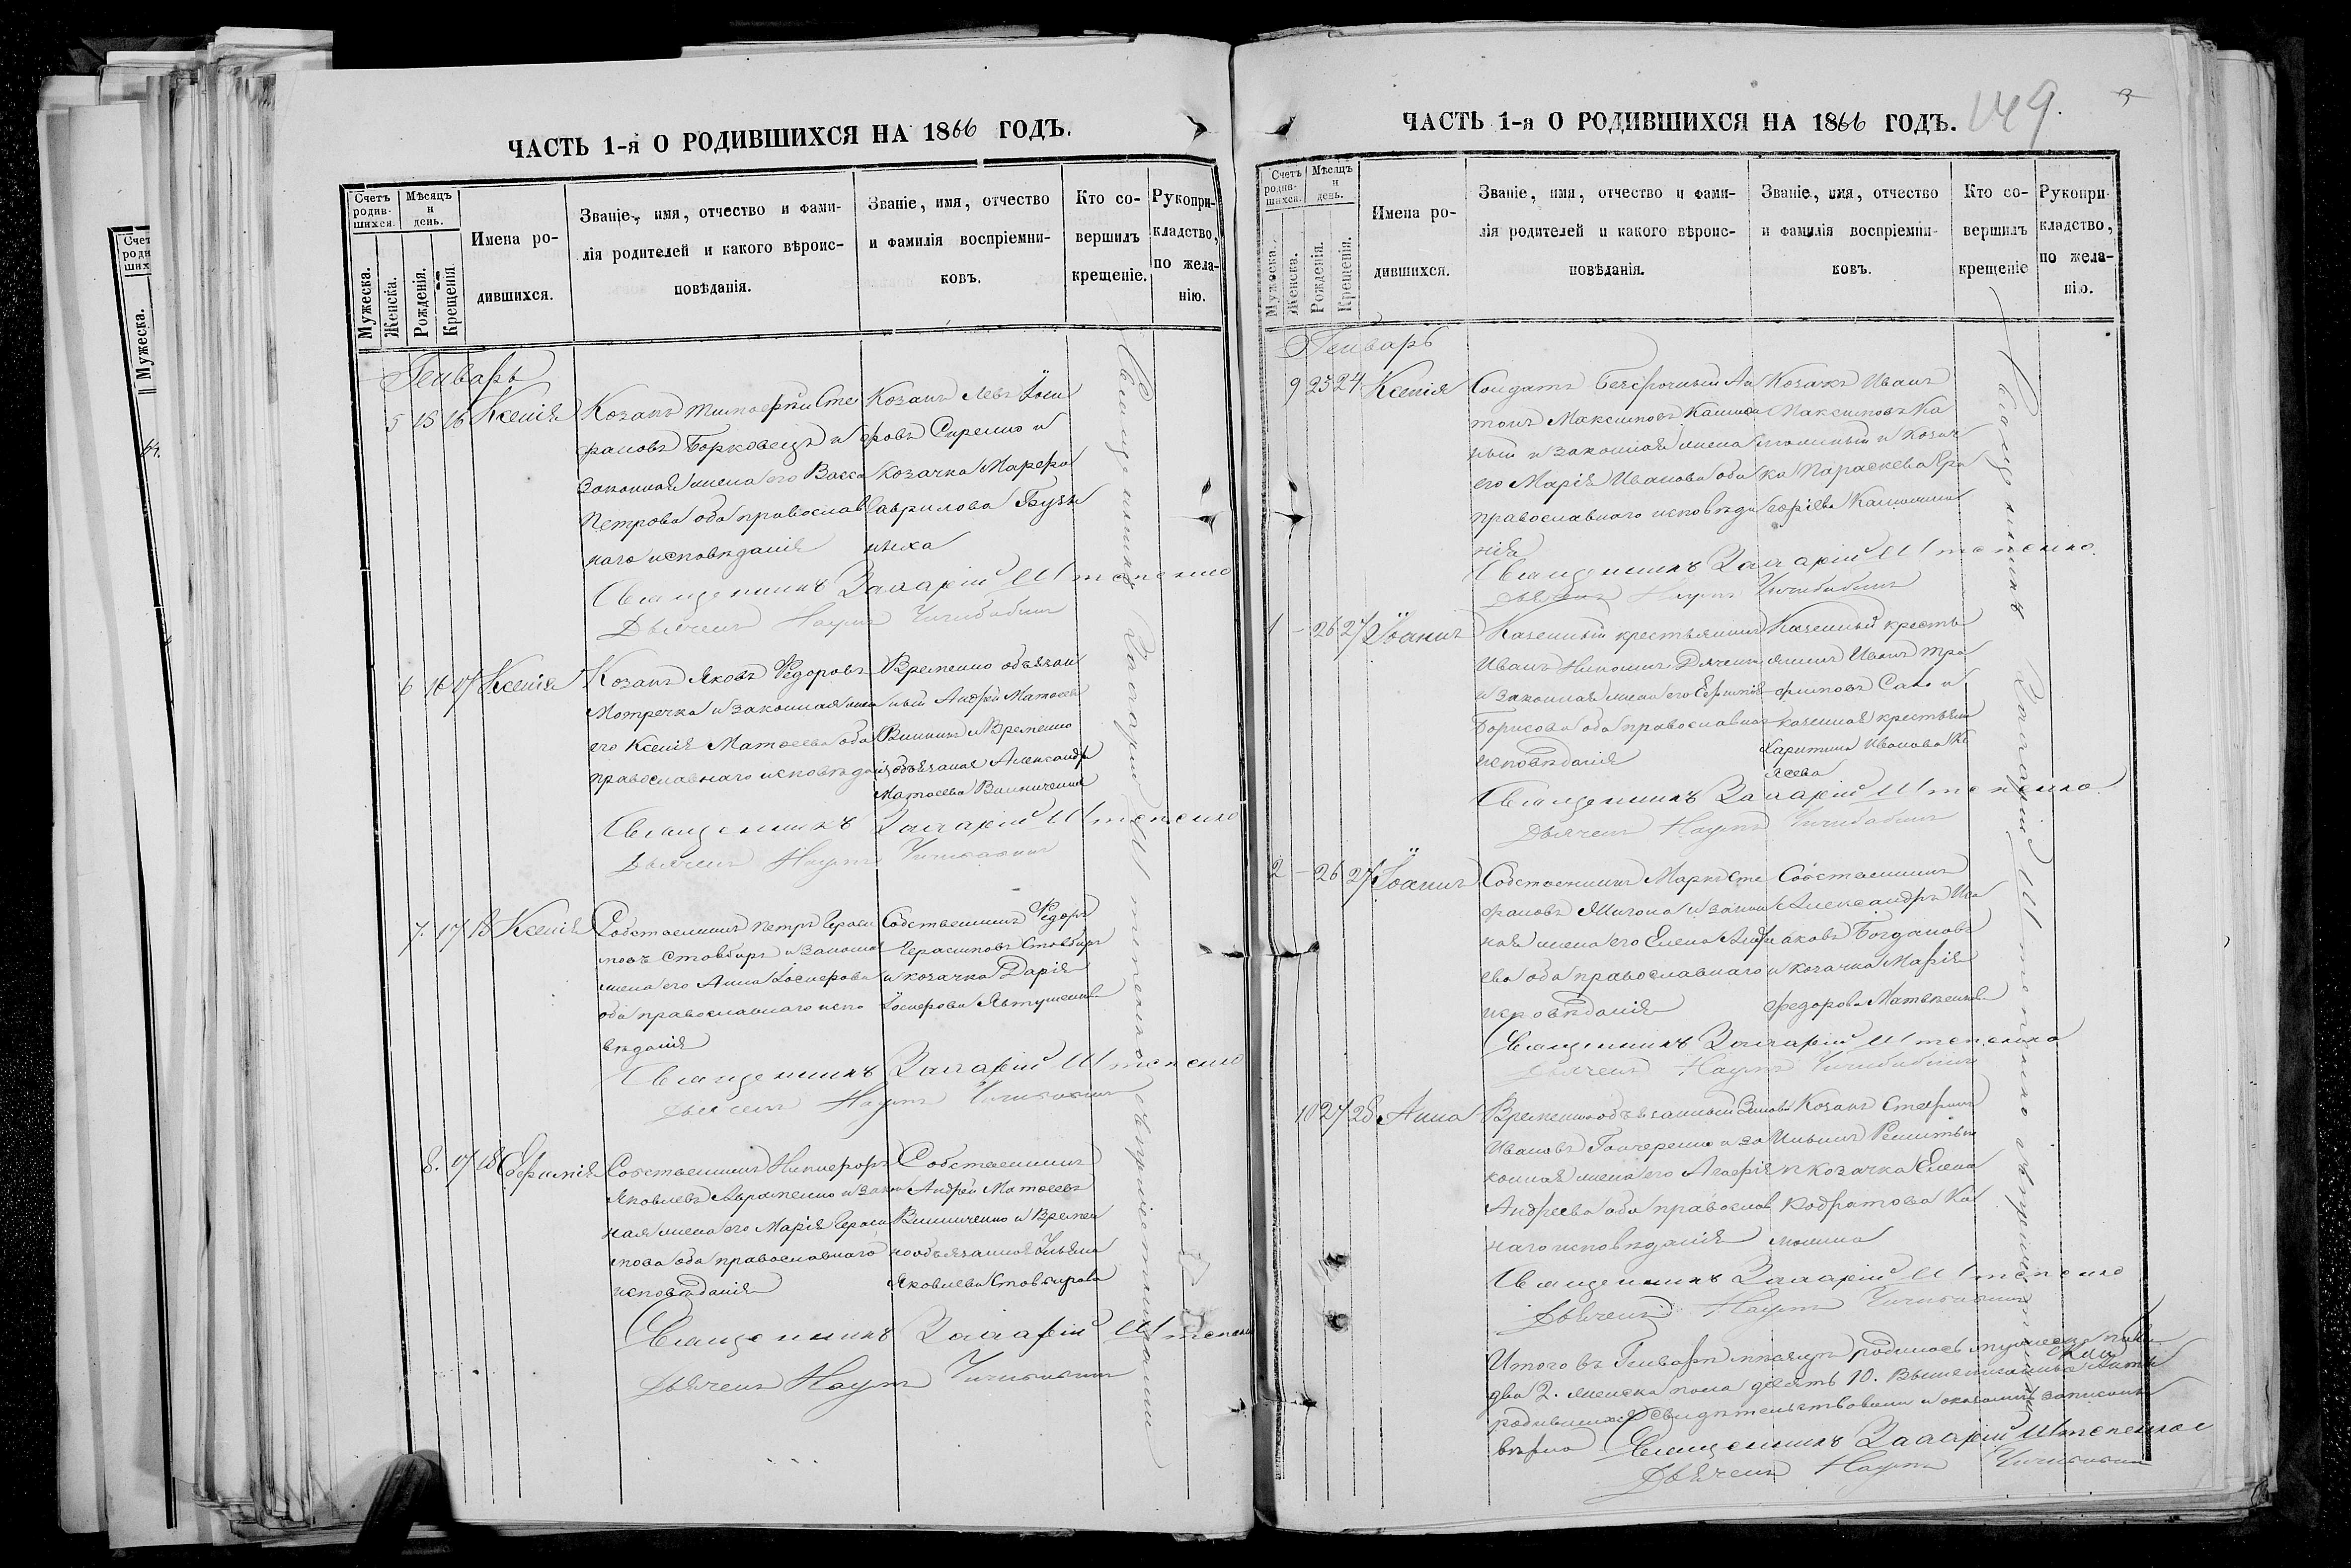 ЧАСТЬ 1-я О РОДИВШИХСЯ НА 1866 ГОДЪ.
Счетъ родив-шихся.
Мужеска.
Женска.
Мѣсяцъ и день.
Рожденія.
Крещенія.
Имена ро-
дившихся.
Званіе, имя, отчество и фами-
лія родителей и какого вѣроис-
повѣданія.
Званіе, имя, отчество
и фамилія воспріемни-
ковъ.
Кто со-
вершилъ
крещеніе.
Рукопри-
кладство,
по жела-
нію.
Генварь
5 15 16 Ксенія
Козакъ Тимоѳей Сте
фановъ Борковецъ и
законная жена его Васса
Петрова оба православ
наго исповѣданія
Козакъ Левъ Іоси
фовъ Сиренко и
козачка Марфа
Гаврилова
Священникъ Захарій Штепенко
Дьячекъ Наумъ Чичибабинъ
6 16 17 Ксенія
Козакъ Яковъ Ѳедоровъ
Мотречко и законная жена
его Ксенія Матѳеева оба
православнаго исповѣданія
Временно обязан
ный Андрей Матѳеевъ
и Временно
обязаная Александра
Матѳеева Винниченкова
Священникъ Захарій Штепенко
Дьячекъ Наумъ Чичибабинъ
7. 17 18 Ксенія
Собственникъ Петръ Гераси
мовъ Стовбыръ и законная
жена его Анна Іосифова
оба православнаго испо
вѣданія
Собственникъ Ѳедоръ
Герасимовъ Стовбыръ
и козачка Дарія
Іосифова Явтушенкова
Священникъ Захарій Штепенко
Дьячекъ Наумъ Чичибабинъ
8. 17 18 Евфимія
Собственникъ Никифоръ
Яковлевъ Авраменко и закон
ная жена его Марія Гераси
мова оба православнаго
исповѣданія
Собственникъ
Андрей Матѳеевъ
Винниченко и Времен
нообязанная Ульяна
Яковлева Стовбирова
Священникъ Захарій Штепенко
Дьячекъ Наумъ Чичибабинъ
Священникъ Захарій Штепенко съ причетниками
149.
3
ЧАСТЬ 1-я О РОДИВШИХСЯ НА 1866 ГОДЪ.
Счетъ родив-шихся.
Мужеска.
Женска.
Мѣсяцъ и день.
Рожденія.
Крещенія.
Имена ро-
дившихся.
Званіе, имя, отчество и фами-
лія родителей и какого вѣроис-
повѣданія.
Званіе, имя, отчество
и фамилія воспріемни-
ковъ.
Кто со-
вершилъ
крещеніе
Рукопри-
кладство,
по жела-
нію.
Генварь
9 23 24 Ксенія
Солдатъ безсрочный Ан
тонъ Максимовъ
ный и законная жена
его Марія Иванова оба
православнаго исповѣда
нія
Козакъ Иванъ
Максимовъ Ка
и козач
ка Параскева
Священникъ Захарій Штепенко
Дьячекъ Наумъ Чичибабинъ
1 - 26 27 Іоаннъ
Казенный крестьянинъ
Иванъ
и законная жена его Евфимія
Борисова оба православнаго
исповѣданія
Казенный кресть
янинъ Иванъ Тро
фимовъ Сало и
казенная крестьянка
Харитина Иванова
Священникъ Захарій Штепенко
Дьячекъ Наумъ Чичибабинъ
2 - 26 27 Іоаннъ
Собственникъ Марко Сте
фановъ Мигона и закон
ная жена его Елена Андре
ева оба православнаго
исповѣданія
Собственникъ
Александръ Иса
аковъ Богдановъ
и козачка Марія
Федорова
Священникъ Захарій Штепенко
Дьячекъ Наумъ Чичибабинъ
10 27 28 Анна
Временнообязанный
Ивановъ Гончаренко и за
конная жена его Агафія
Андреева оба православ
наго исповѣданія
Козакъ Стефанъ
Ильинъ
и козачка Елена
Кодратова Ка
Священникъ Захарій Штепенко
Дьячекъ Наумъ Чичибабинъ
Итого въ Генварѣ мѣсяцѣ родилось мужеска пола
два 2. женска пола десять 10.
родившихся свидѣтельствовали и записаны
вѣрно Священникъ Захарій Штепенко
Дьячекъ Наумъ Чичибабинъ
Священникъ Захарій Штепенко съ причетниками